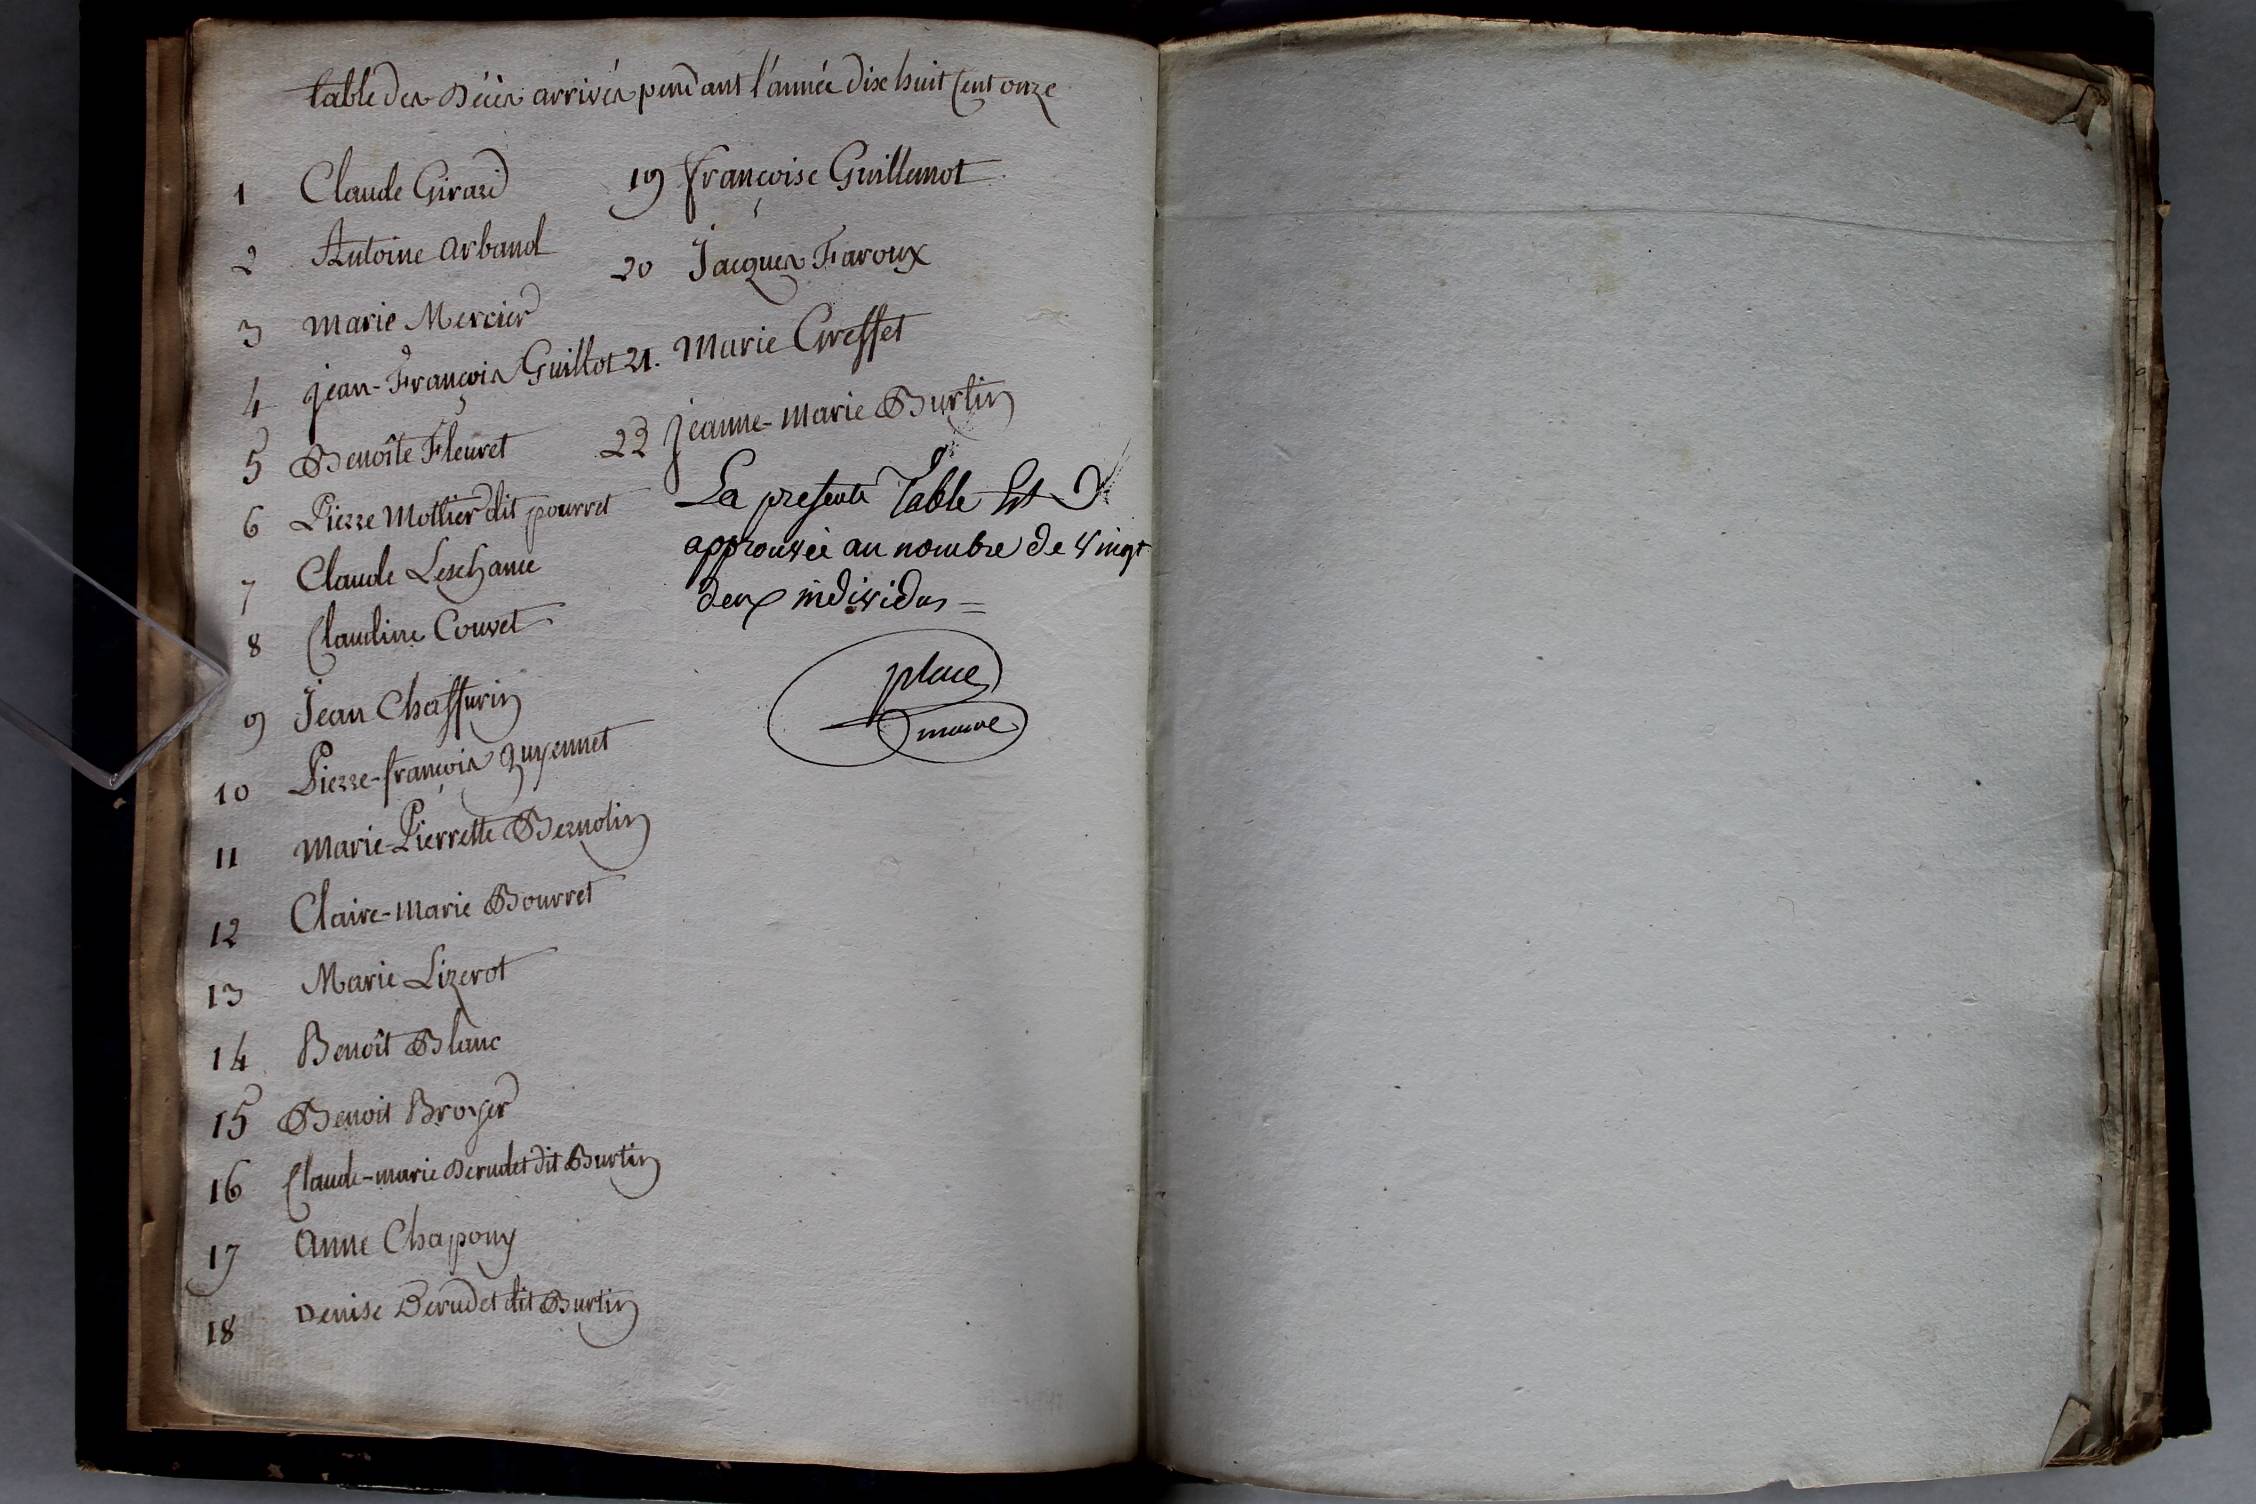 table des Décès arrivés pendant l'année dix huit Cent onze
1 Claude Girard
2 Antoine Arband
3 Marie Mercier
4 jean-François Guillot
5 Benoîte Fleuret
6 Pierre Mottier dit pourret
7 Claude Leschanie
8 Claudine Couvet
9 Jean Chaffurin
10 Pierre-françois Zuyennet
11 Marie-Pierrette Bernolin
12 Claire-Marie Bourret
13 Marie Lizerot
14 Benoît Blanc
15 Benoit Broyer
16 Claude-marie Derudet dit Burtin
17 Anne Chapouy
18 Denise Derudet dit Burtin
19 françoise Guillemot
20 Jacques Faroux
21. Marie Greffet
22 jeanne-Marie Burtin
La presente Table Est
approuvée au nombre de vingt
deux individus =
place
maire